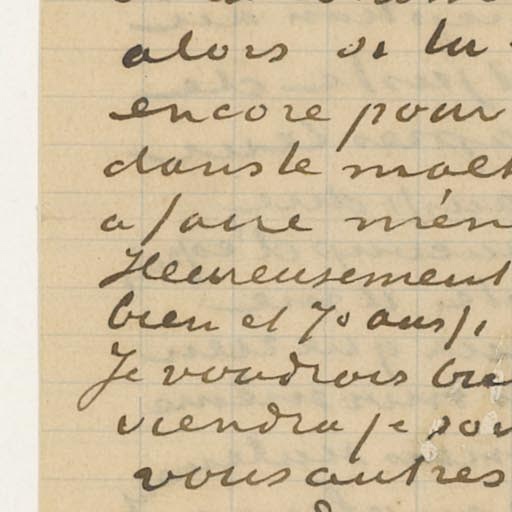 alors si tu
encore pour
dans le
a faire
Heureusement
bien et 70 ans
Je voudrois
viendra je
vous autres